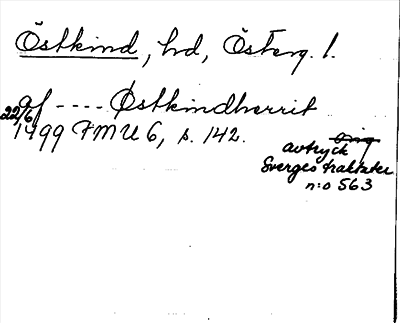 Östkind, hd, Österg. l.
af ---- Østkindherrit
22/6
1499 FMU 6, s. 142.
orig
avtryck
Sverges traktater
n:o 563